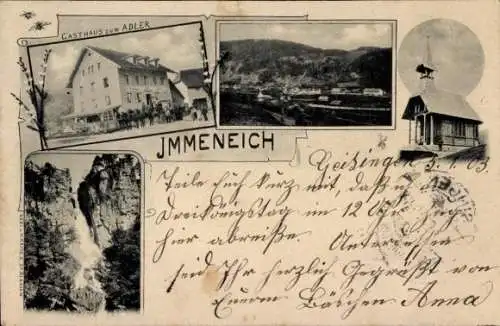 GASTHAUS ZUM ADLER
JMMENEICH
Geisingen 5.1.03.
Teile Euch kurz mit, daß ich am
Dreikönigstag im 12 Uhr Zug
hier abreise. Unterdessen
seid Ihr herzlich Gegrüßt von
Euerm Bäschen Anna